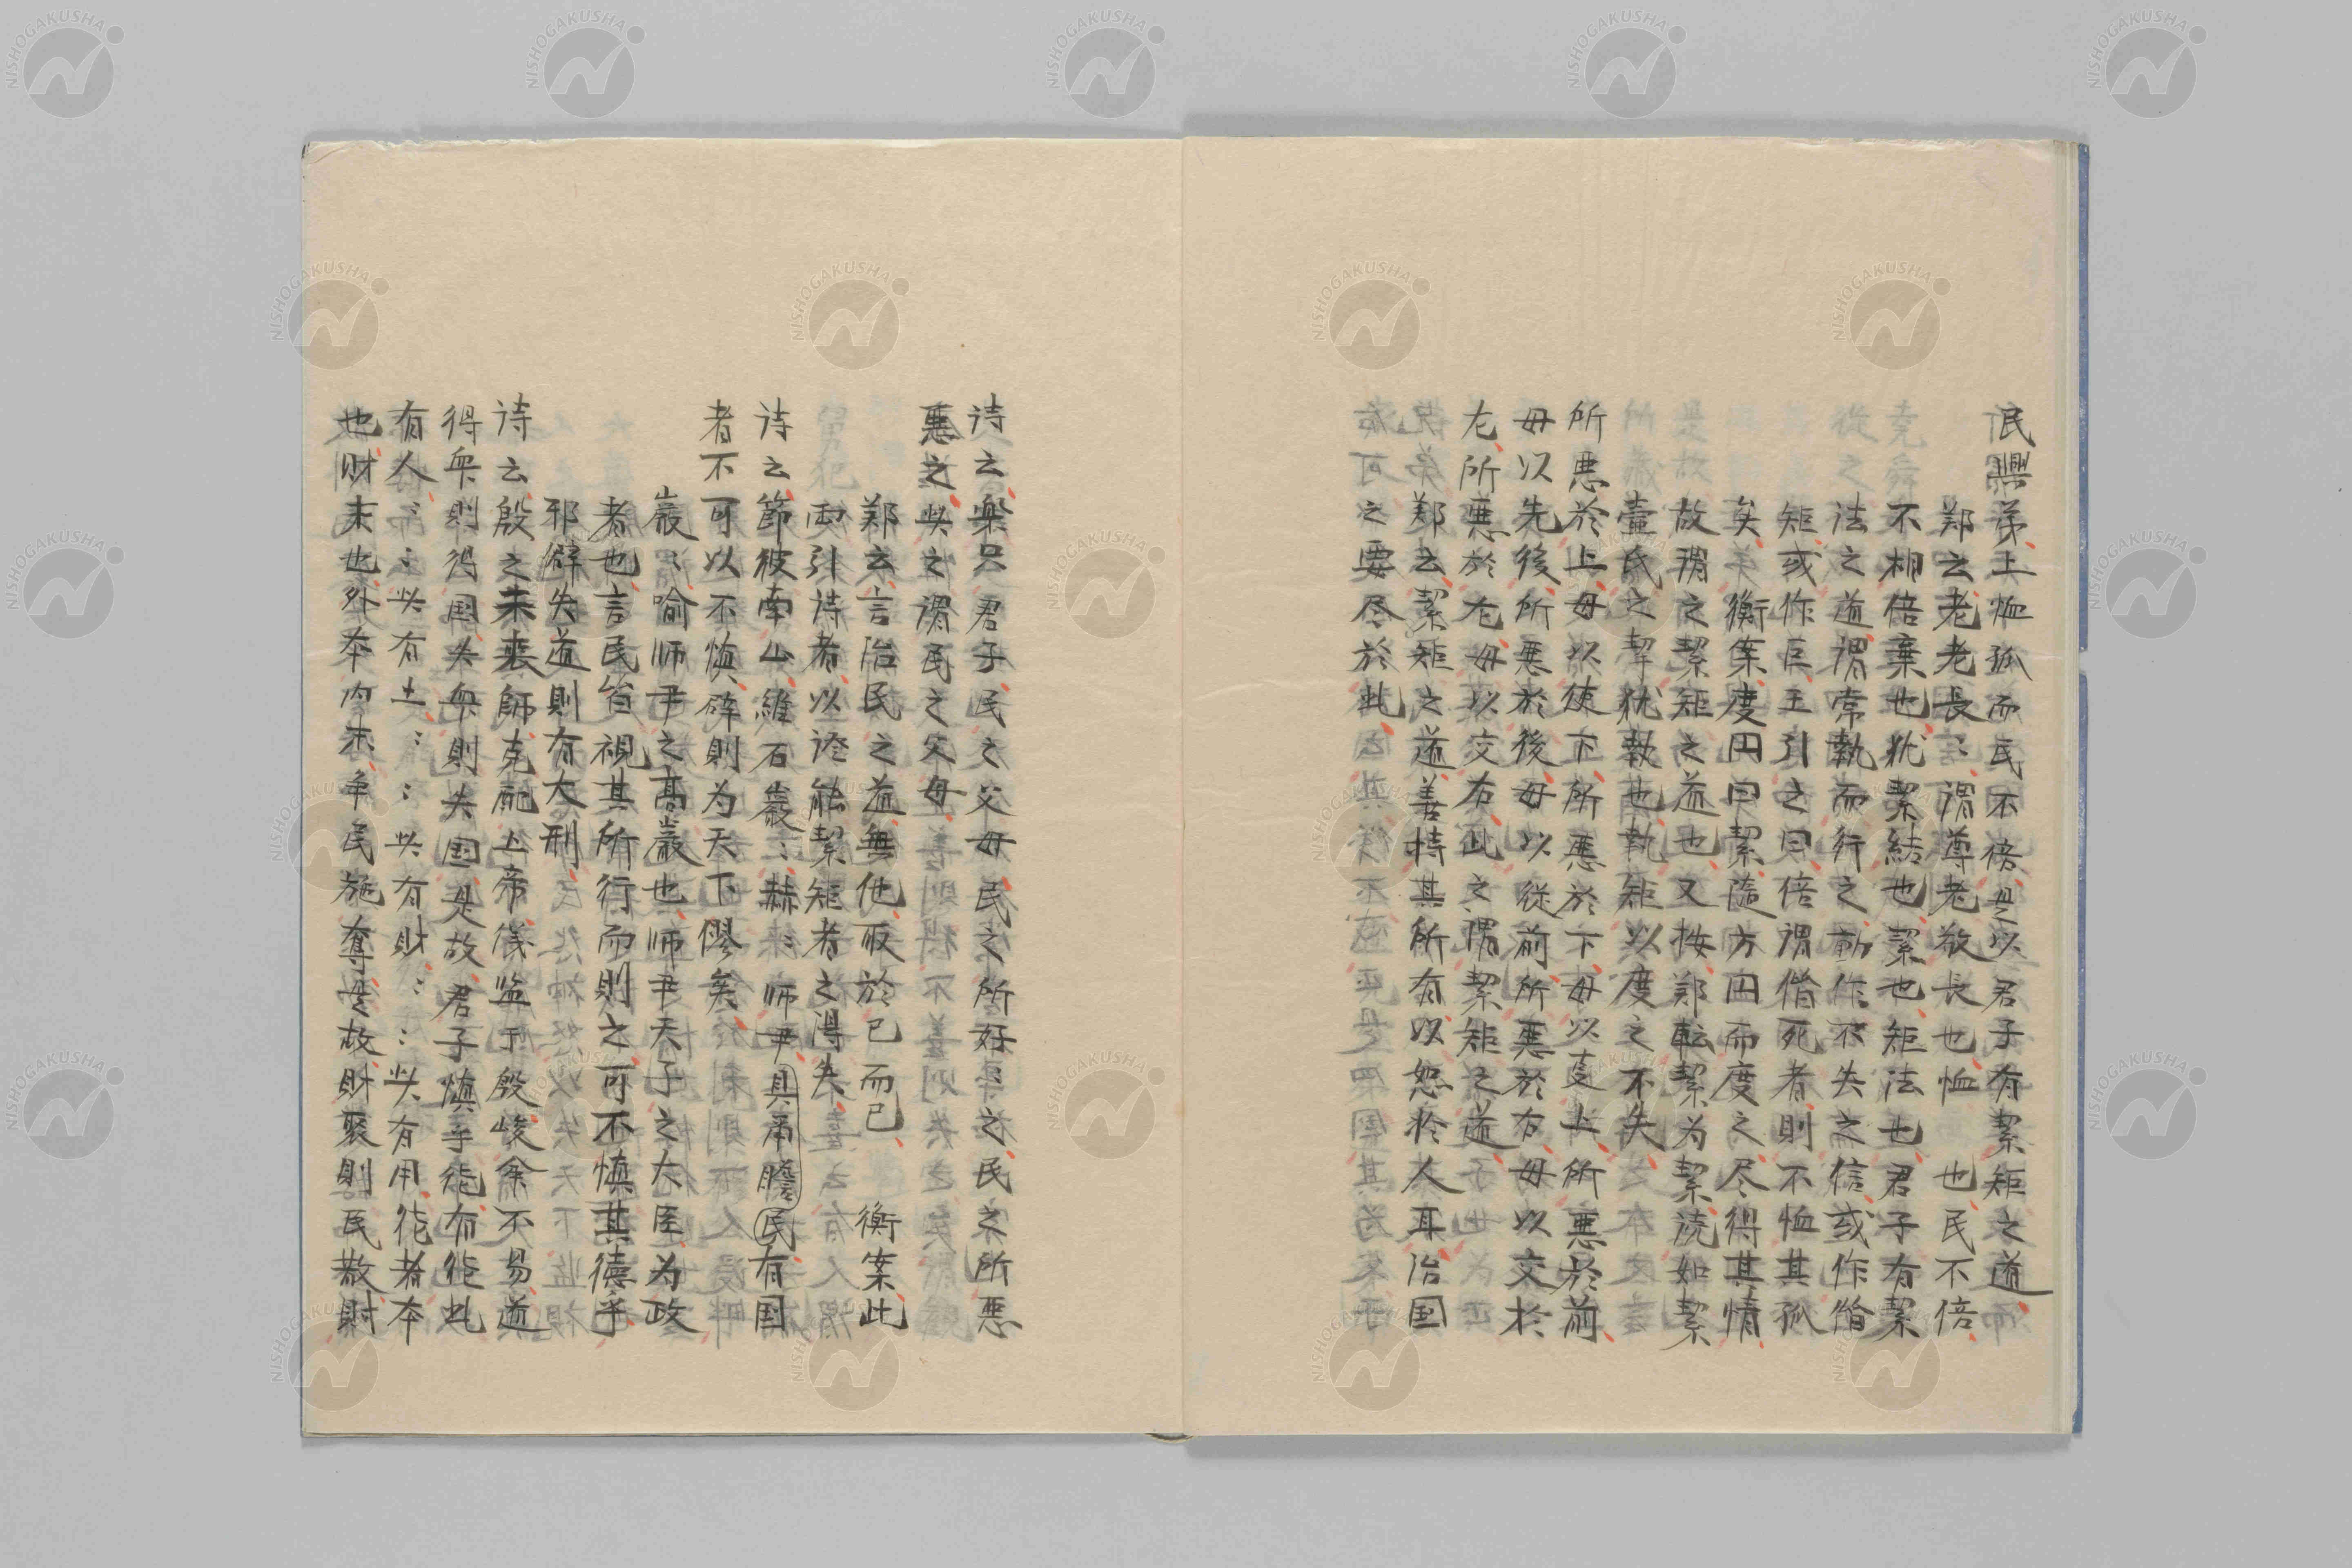 民興弟上恤孤而民不倍是以君子有絜矩之道
鄭云老老長〻謂尊老敬長也恤 也民不倍
不相倍棄也犹絜結也絜也矩法也君子有絜
法之道謂常執而行之動作不失之倍或作偝
矩或作巨王引之曰倍謂偝死者則不恤其孤
矣 衡案度円曰絜隨方円而度之尽得其情
故謂之絜矩之道也又按鄭転絜为絜読如絜
壷氏之挈犹執也執矩以度之不失
所悪於上毋以使下所悪於下毋以事上所悪於前
毋以先後所悪於後毋以従前所悪於右毋以交於
左所悪於左毋以交右此之謂絜矩之道
鄭云絜矩之道善持其所有以恕於人耳治国
之要尽於此
诗云楽只君子民之父母民之所好〻之民之所悪
悪之此之謂民之父母
鄭云言治民之道無他取於己而已 衡案此
両引诗者以證能絜矩者之得失
诗云節彼南山維石巌〻赫〻師尹具甬瞻民有国
者不可以不慎辟則为天下僇矣
巌〻喻师尹之高巌也师尹天子之大臣为政
者也言民皆視其所行而則之可不慎其德乎
邪辟失道則有大刑
诗云殷之未喪師克配上帝儀監于殷峻命不易道
得衆則得国失衆則失国是故君子慎乎德有德此
有人〻〻此有土〻〻此有財〻〻此有用德者本
也財末也外本内末争民施奪是故財聚則民散財
NISHOGAKUSHA